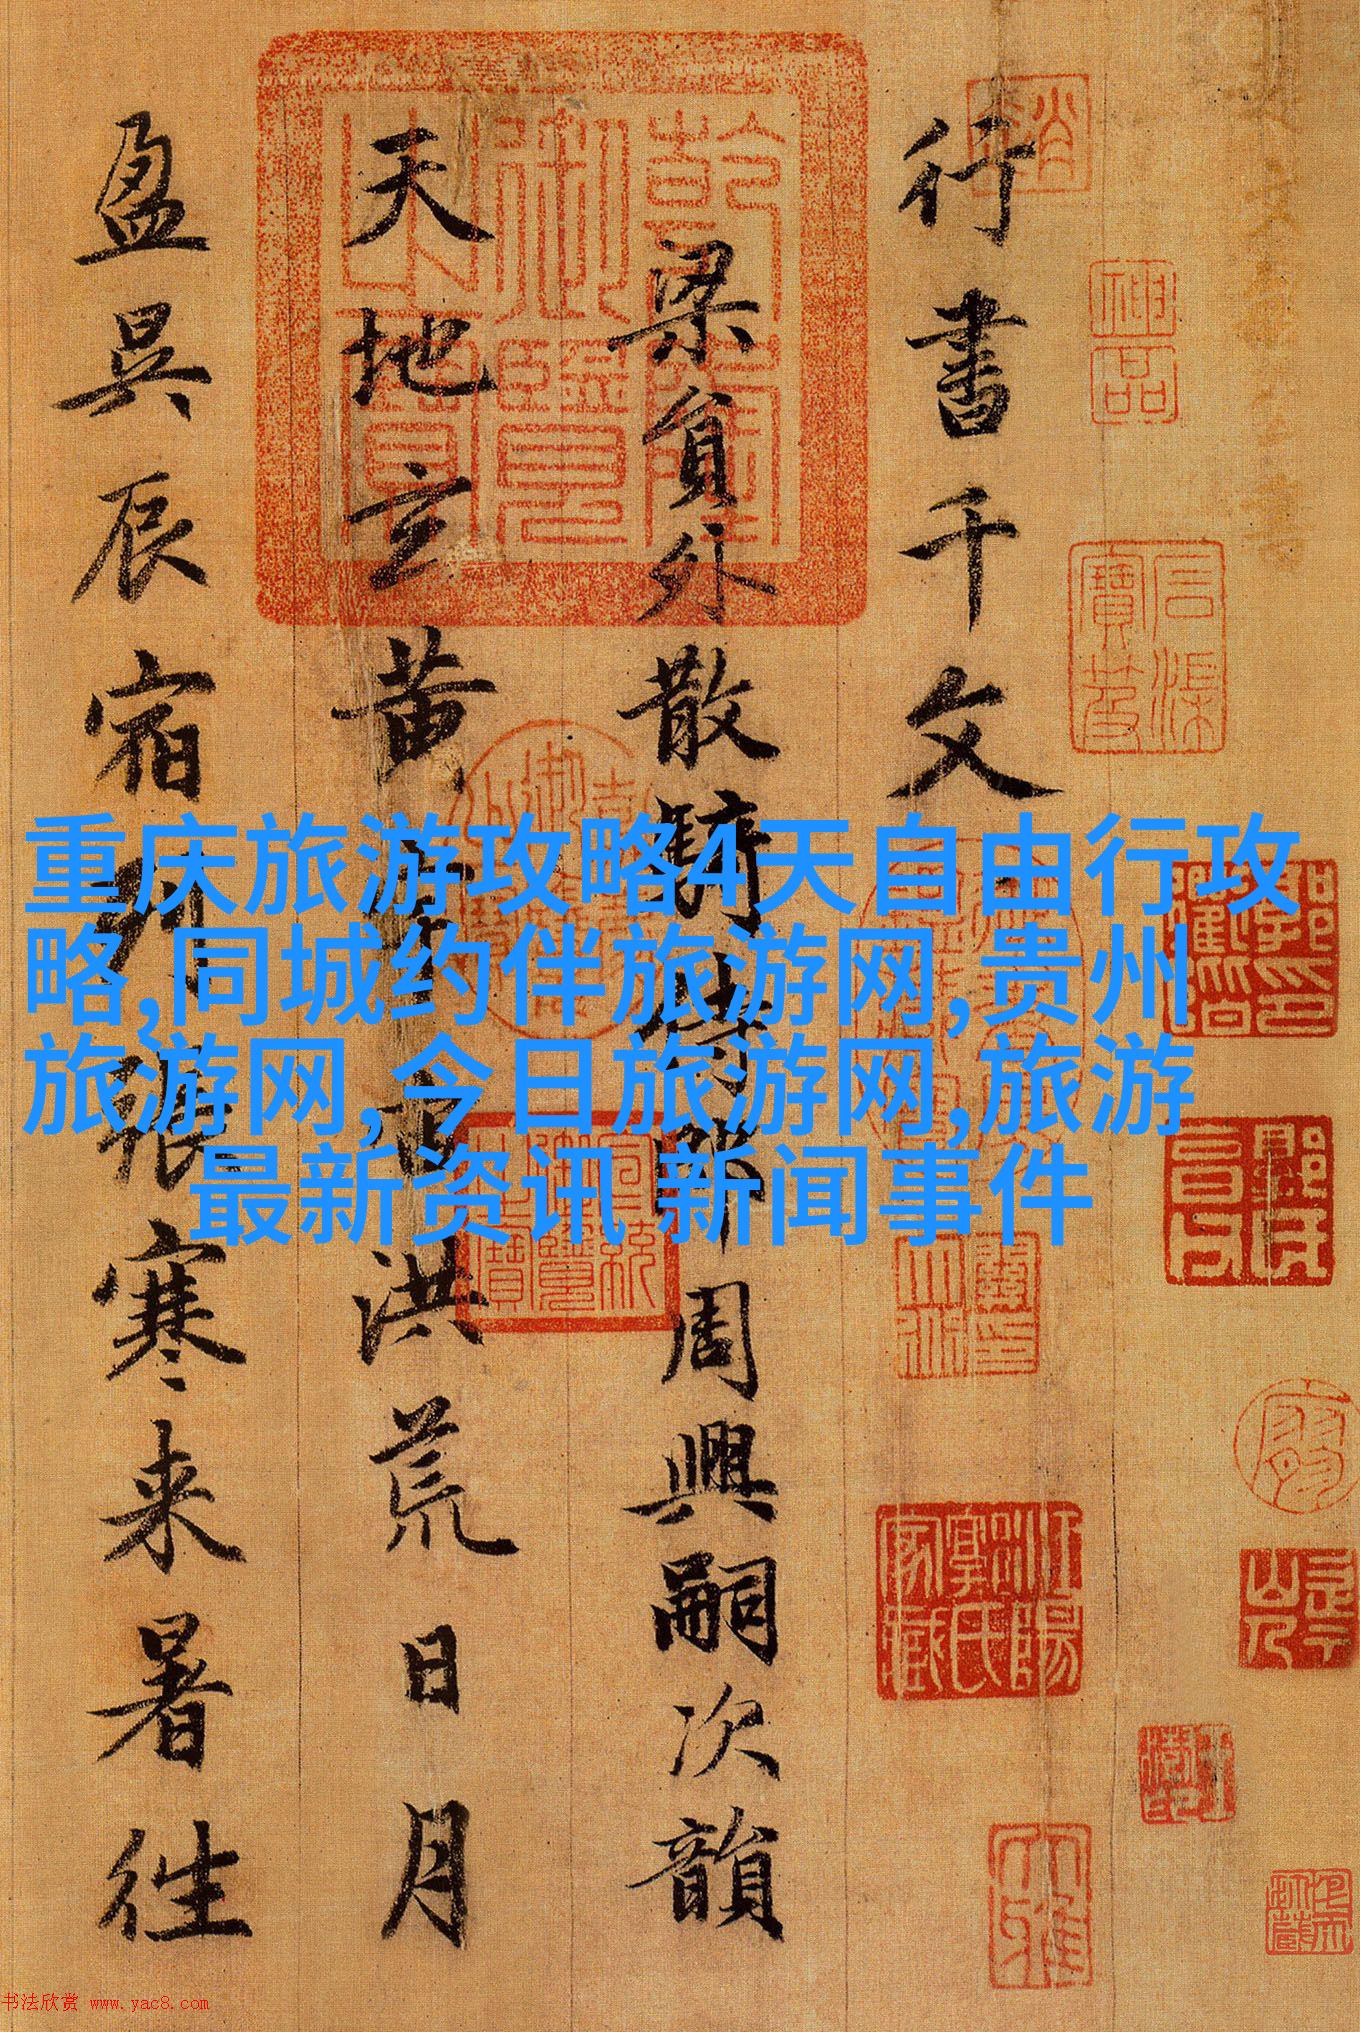 行書千文
梁員外散騎侍郎周興嗣次韻
天地玄黄宇宙洪荒日月
盈昃辰宿列張寒来暑往
重庆旅游攻略4天自由行攻
略,同城约伴旅游网,贵州
旅游网,今日旅游网,旅游
最新资讯 新闻事件
神品
乾隆御覽之寶
宣統御覽之寶
大雅
书法欣赏 www.yac8.com